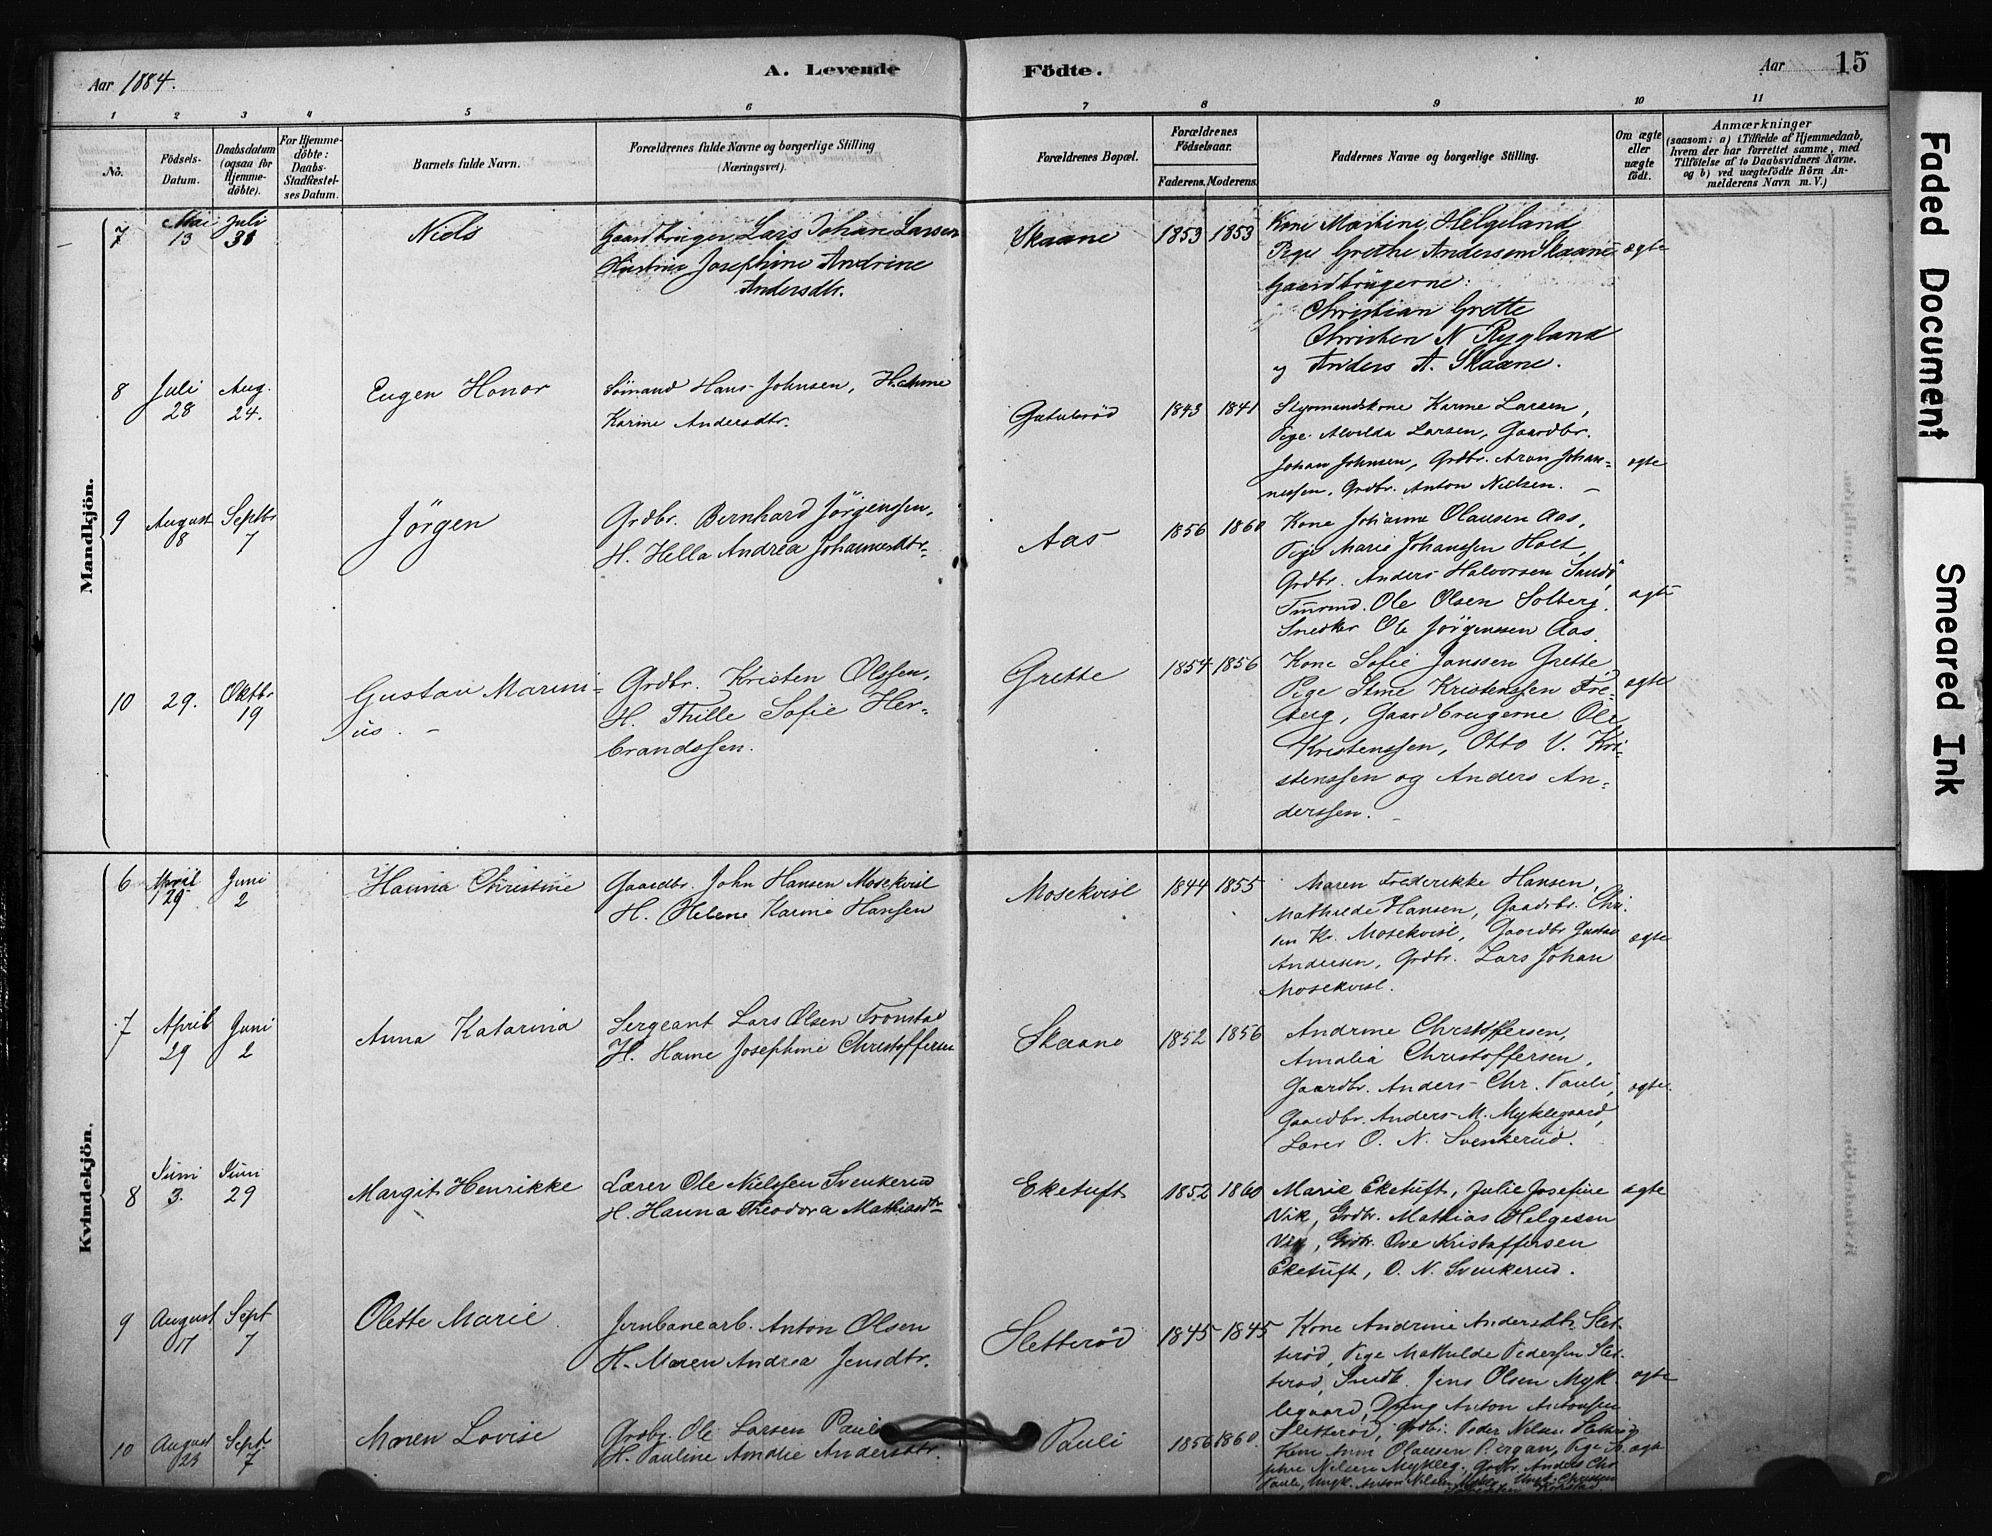 Aar 1884.
A. Levende
Födte.
Aar
15
1 2 3 4 5 6 7 8 9 10 11
No.
Födsels-
Datum.
Daabsdatum
(ogsaa for
Hjemme-
döbte).
For Hjemme-
döbte:
Daabs-
Stadfæstel-
ses Datum.
Barnets fulde Navn.
Forældrenes fulde Navne og borgerlige Stilling
(Næringsvei).
Forældrenes Bopæl.
Forældrenes
Födselsaar.
Faderens. Moderens.
Faddernes Navne og borgerlige Stilling.
Om ægte
eller
uægte
födt.
Anmærkninger
(saasom: a) i Tilfælde af Hjemmedaab,
hvem der har forrettet samme, med
Tilföielse af to Daabsvidners Navne,
og b) ved uægtefödte Börn An-
melderens Navn m. V.)
Mandkjön.
7
Mai
13
Juli
31
Niels
Gaardbruger Lars Johan Larsen
Hustru Josephine Andrine
Andersdtr.
Skaane
1853 1853
Kone Martine Helgeland
Pige Grethe Andersen Skaane
Gaardbrugerne:
Christian Grette
Christen N Rygland
og Anders A. Skaane.
ægte
8
Juli
28
Aug.
24.
Eugen Honor
Sömand Hans Johnsen,
Karine Andersdtr.
1843 1841
Styrmandskone Karine Larsen,
Pige Alvilda Larsen, Gaardbr.
Johan Johnsen, Grdbr. Aron Johan-
nessen, Grdbr. Anton Nielsen. –
ægte
9
August
8
Septbr
7
Jörgen
Grdbr. Bernhard Jörgenssen,
H. Hella Andrea Johannesdtr.
Aas
1856 1860
Kone Johanne Olausen Aas,
Pige Marie Johanssen Holt,
Grdbr. Anders Halvorsen Sandö,
Tmrmd. Ole Olsen Solberg.
Snedker Ole Jörgenssen Aas.
ægte
10
29.
Oktbr
19
Gustav Marini-
us. –
Grdbr. Kristen Olssen,
H. Thille Sofie Her-
brandssen.
Grette
1854 1856
Kone Sofie Janssen Grette,
Pige Stine Kristenssen Fre-
berg, Gaardbrugerne Ole
Kristenssen, Otto V. Kri-
stenssen og Anders An-
derssen. –
ægte
Kvindekjön.
6
April
29
Juni
2
Hanna Christine
Gaardbr. John Hansen Mosekvisl
H. Helene Karine Hanssen
Mosekvisl
1844 1855
Maren Frederikke Hansen,
Mathilde Hansen, Gaardbr. Chri-
sten Kr. Mosekvisl, Gaardbr Gustav
Andersen, Grdbr. Lars Johan
Mosekvisl.
ægte
7
April
29
Juni
2
Anna Katarina
Sergeant Lars Olsen Tronstad
H. Hanne Josephine Christoffersen
Skaane
1852 1856
Andrine Christoffersen,
Amalia Christoffersen,
Gaardbr. Anders Chr. Pauli,
Gaardbr. Anders M. Myklegaard,
Lærer O. N. Svenkerud.
ægte.
8
Juni
3.
Juni
29
Margit Henrikke
Lærer Ole Nielssen Svenkerud
H. Hanna Theodora Mathiasdtr
Eketuft
1852 1860
Marie Eketuft, Julie Josefine
Vik, Grdbr. Mathias Helgesen
Vik, Grdbr. Ove Kristoffersen
Eketuft, O. N. Svenkerud.
ægte
9
August
17
Sept
7
Olette Marie
Jernbanearb. Anton Olsen
H. Maren Andrea Jensdtr.
Sletteröd
1845 1845
Kone Andrine Andersdtr. Slet-
teröd, Pige Mathilde Pederssen Slet-
teröd, Snedk. Jens Olsen Myk-
legaard, Yng Anton Antonssen
Sletteröd, Grdbr. Peder Nilsen
ægte
10
August
23
Sept
7
Maren Lovise
Grdbr. Ole Larsen Pauli
H. Pauline Amalie Andersdtr.
Pauli
1856 1860
Kone Olaussen Pige
Nilsen Mykleg., Grdbr. Anders Chr
Pauli, Ungk. Anton Nilsen
ægte
Faded Document
Smeared Ink